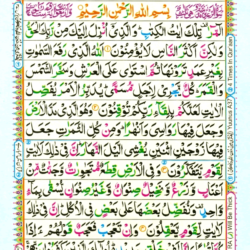 بِسْمِ اللّٰهِ الرَّحْمٰنِ الرَّحِيْمِ
الٓمّٓرٰ تِلْكَ اٰيٰتُ الْكِتٰبِ وَالَّذِيْٓ اُنْزِلَ اِلَيْكَ مِنْ رَّبِّكَ الْحَقُّ
وَلٰكِنَّ اَكْثَرَ النَّاسِ لَا يُؤْمِنُوْنَ اَللّٰهُ الَّذِيْ رَفَعَ السَّمٰوٰتِ
بِغَيْرِ عَمَدٍ تَرَوْنَهَا ثُمَّ اسْتَوٰى عَلَى الْعَرْشِ وَسَخَّرَ الشَّمْسَ
وَالْقَمَرَ كُلٌّ يَّجْرِيْ لِاَجَلٍ مُّسَمًّى يُدَبِّرُ الْاَمْرَ يُفَصِّلُ
الْاٰيٰتِ لَعَلَّكُمْ بِلِقَآءِ رَبِّكُمْ تُوْقِنُوْنَ وَهُوَ الَّذِيْ مَدَّ الْاَرْضَ
وَجَعَلَ فِيْهَا رَوَاسِيَ وَاَنْهٰرًا وَمِنْ كُلِّ الثَّمَرٰتِ جَعَلَ
فِيْهَا زَوْجَيْنِ اثْنَيْنِ يُغْشِي الَّيْلَ النَّهَارَ اِنَّ فِيْ ذٰلِكَ لَاٰيٰتٍ
لِّقَوْمٍ يَّتَفَكَّرُوْنَ وَفِي الْاَرْضِ قِطَعٌ مُّتَجٰوِرٰتٌ وَّجَنّٰتٌ مِّنْ
اَعْنَابٍ وَّزَرْعٌ وَّنَخِيْلٌ صِنْوَانٌ وَّغَيْرُ صِنْوَانٍ يُّسْقٰى بِمَآءٍ
وَّاحِدٍ وَنُفَضِّلُ بَعْضَهَا عَلٰى بَعْضٍ فِي الْاُكُلِ اِنَّ فِيْ ذٰلِكَ
Times In Our
Will Be Thick